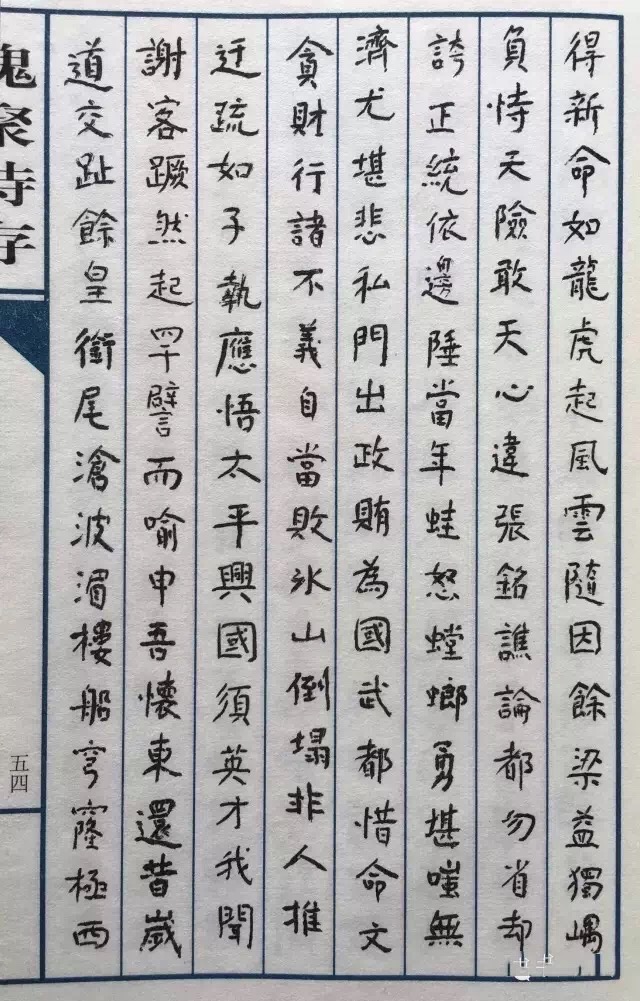 得新命如龍虎起風雲隨因餘梁益獨嵎
負恃天險敢天心違張銘譙論都勿省却
誇正統依邊陲當年蛙怒螳螂勇堪嗤無
濟尤堪悲私門出政賄為國武都惜命文
貪財行諸不義自當敗氷山倒塌非人推
迂疏如子執應悟太平興國須英才我聞
謝客蹶然起罕譬而喻申吾懷東還昔歲
道交趾餘皇銜尾滄波湄樓船穹窿極西
詩存
五四